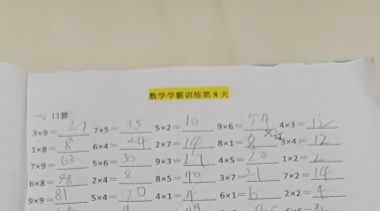 数学学霸训练第 8 天
一、口算
3×9= 27 7×5= 35 5×2= 10 9×6= 54 4×3= 12
1×8= 8 6×4= 24 2×7= 14 8×1= 3×4= 12
7×9= 63 5×6= 30 9×3= 4×5= 20 1×2= 2
6×8= 2×4= 8 8×5= 40 3×7= 21 7×2= 14
9×9= 81 5×4= 20 4×1= 4 6×1= 6 2×2= 4